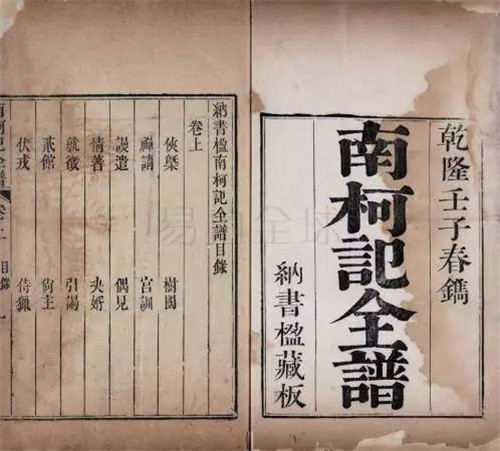 乾隆壬子春鐫
南柯記全譜
納書楹藏板
納書楹南柯記全譜目錄
卷上
俠槩
樹國
禪請
宮訓
謾遣
偶見
情著
決婿
就徵
引謁
貳館
尚主
伏戎
侍獵
南柯記全譜
目錄